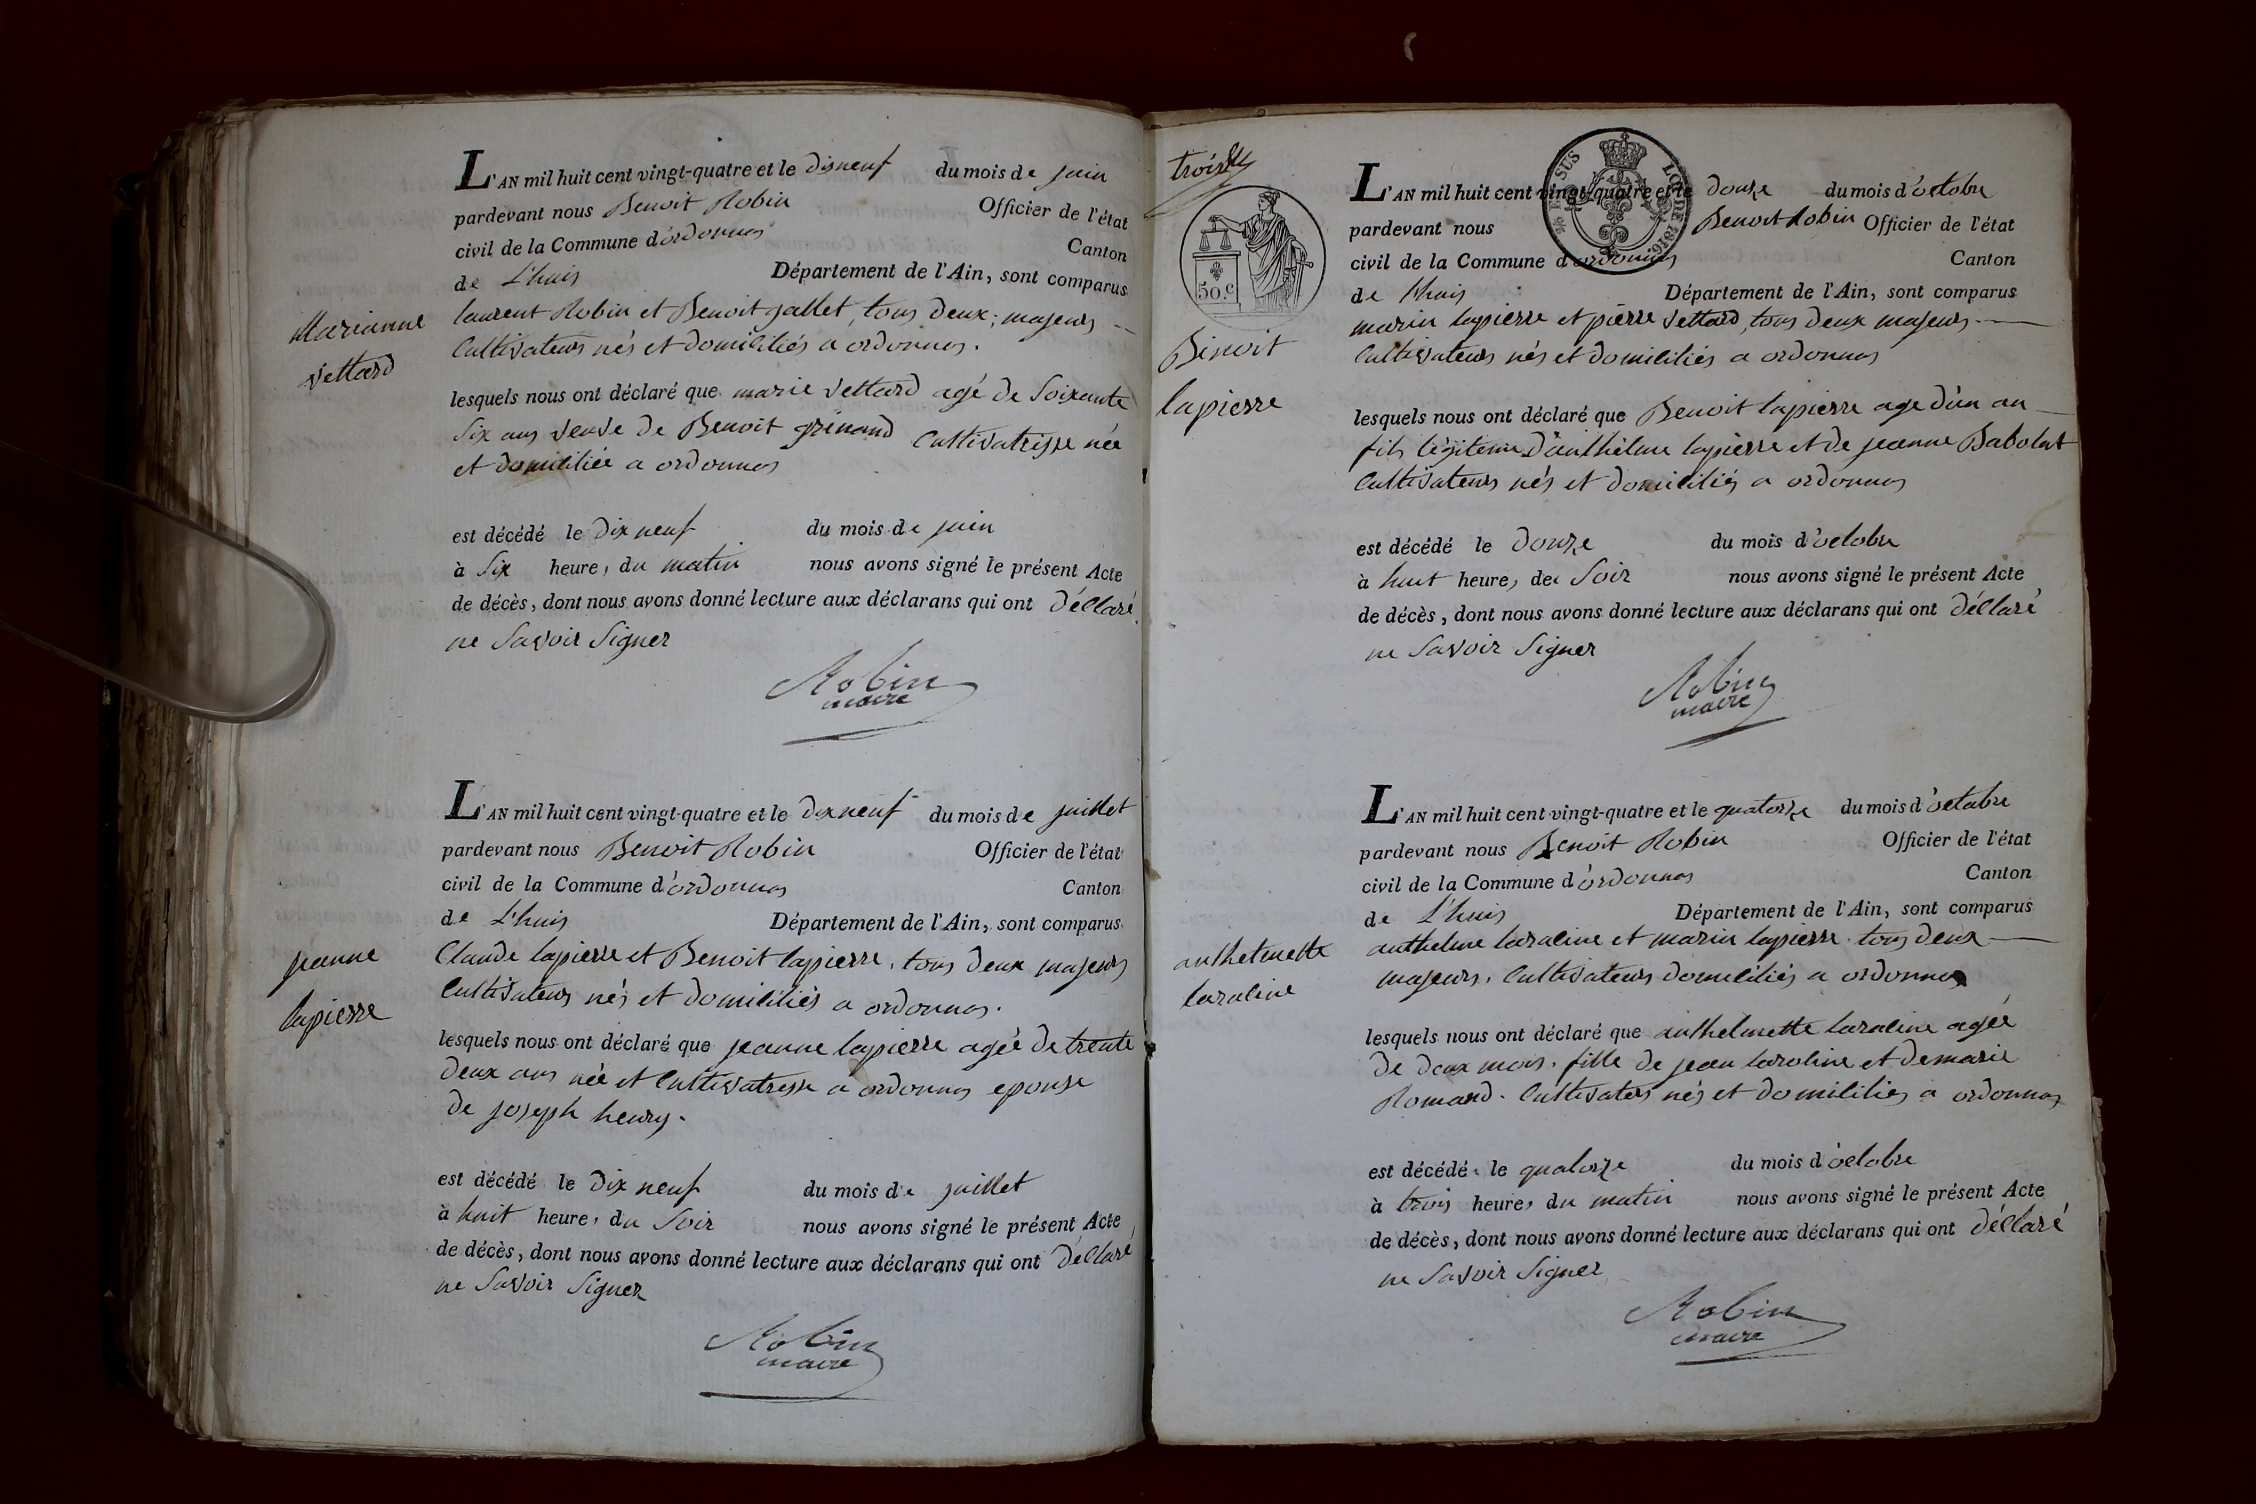 Marianne
vettard
L'AN mil huit cent vingt-quatre et le disneuf du mois de juin
pardevant nous Benoit Robin Officier de l'état
civil de la Commune d'ordonnas Canton
de L'huis Département de l'Ain, sont comparus
laurent Robin et Benoit gallet, tous deux, majeurs
Cultivateurs nés et domiciliés a ordonnas.
lesquels nous ont déclaré que marie vettard agé de soixante
six ans veuve de Benoit Cultivatrisse née
et domiciliée a ordonnas
est décédé le dix neuf du mois de juin
à six heures du matin nous avons signé le présent Acte
de décès, dont nous avons donné lecture aux déclarans qui ont déclaré
ne savoir signer
Robin
maire
jeanne
lapierre
L'AN mil huit cent vingt-quatre et le dixneuf du mois de juillet
pardevant nous Benoit Robin Officier de l'état
civil de la Commune d'ordonnas Canton
de L'huis Département de l'Ain, sont comparus
Claude lapierre et Benoit lapierre, tous deux majeurs
Cultivateurs nés et domiciliés a ordonnas.
lesquels nous ont déclaré que jeanne lapierre agée de trente
deux ans née et Cultivatresse a ordonnas eponse
de joseph henry.
est décédé le dix neuf du mois de juillet
à huit heures du soir nous avons signé le présent Acte
de décès, dont nous avons donné lecture aux déclarans qui ont déclaré
ne savoir signer
Robin
maire
50.c
LOI DE 1816.
Benoit
lapierre
L'AN mil huit cent vingt-quatre et le douze du mois d'octobre
pardevant nous Benoit Robin Officier de l'état
civil de la Commune d'ordonnas Canton
de l'huis Département de l'Ain, sont comparus
marin lapierre et pierre vettard, tous deux majeurs
Cultivateurs nés et domiciliés a ordonnas
lesquels nous ont déclaré que Benoit lapierre age d'un an
fils légiteme d'anthelme lapierre et de jeanne Babolat
Cultivateurs nés et domiciliés a ordonnas
est décédé le douze du mois d'octobre
à huit heures de soir nous avons signé le présent Acte
de décès, dont nous avons donné lecture aux déclarans qui ont déclaré
ne savoir signer
Robin
maire
anthelmette
laraline
L'AN mil huit cent vingt-quatre et le quatorze du mois d'octobre
pardevant nous Benoit Robin Officier de l'état
civil de la Commune d'ordonnas Canton
de L'huis Département de l'Ain, sont comparus
anthelme laraline et marin lapierre tous deux
majeurs, Cultivateurs domiciliés a ordonnas
lesquels nous ont déclaré que anthelmette laraline agée
de deux mois, fille de jean laroline et de marie
Romand. Cultivaters nés et domiciliés a ordonnas
est décédé le quatorze du mois d'octobre
à trois heures du matin nous avons signé le présent Acte
de décès, dont nous avons donné lecture aux déclarans qui ont déclaré
ne savoir signer
Robin
maire